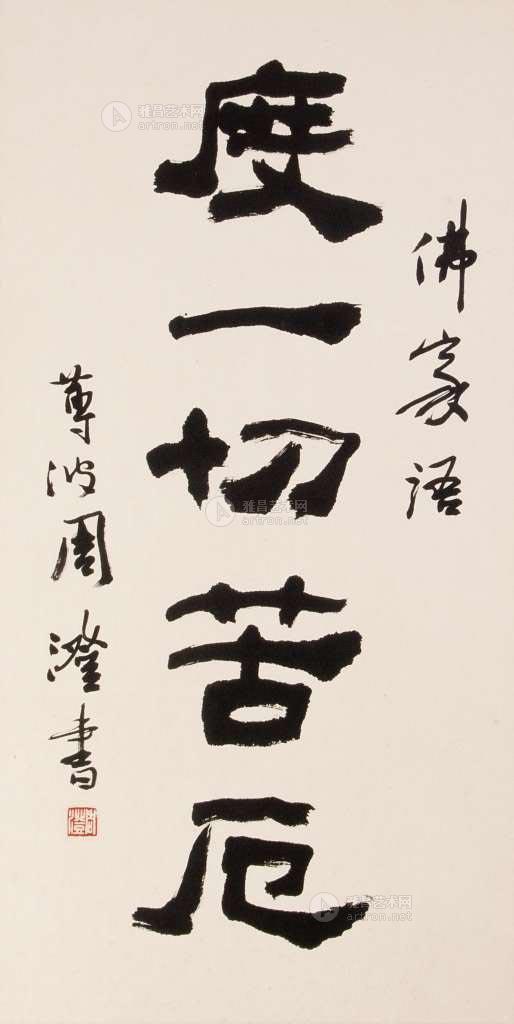 佛家語
度一切苦厄
蓴波周澄書
周澄
雅昌艺术网
artron.net
雅昌艺术网
artron.net
雅昌艺术网
artron.net